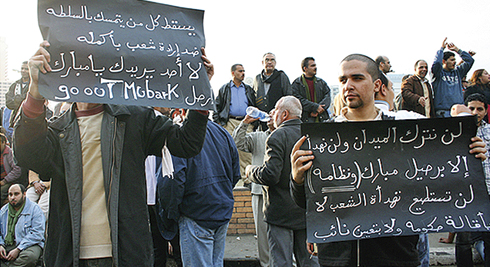 يسقط كل من يتمسك بالسلطه
ضد إرادة شعب بأكمله
لا أحد يريدك يا مبارك
go ouT Mubark إرحل
لن نترك الميدان ولن نهدأ
إلا برحيل مبارك (ونظامه)
لن تستطيع تهدأة الشعب لا
بأقالة حكومه ولا بتعين نائب